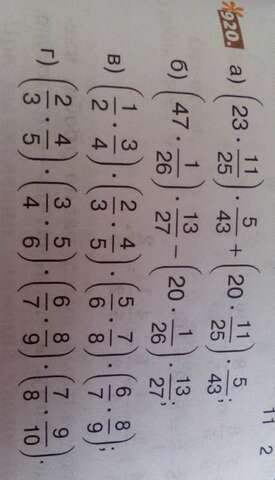 920.
а) (23 · 11/25) · 5/43 + (20 · 11/25) · 5/43;
б) (47 · 1/26) · 13/27 − (20 · 1/26) · 13/27;
в) (1/2 · 3/4) · (2/3 · 4/5) · (5/6 · 7/8) · (6/7 · 8/9);
г) (2/3 · 4/5) · (3/4 · 5/6) · (6/7 · 8/9) · (7/8 · 9/10).
11 2